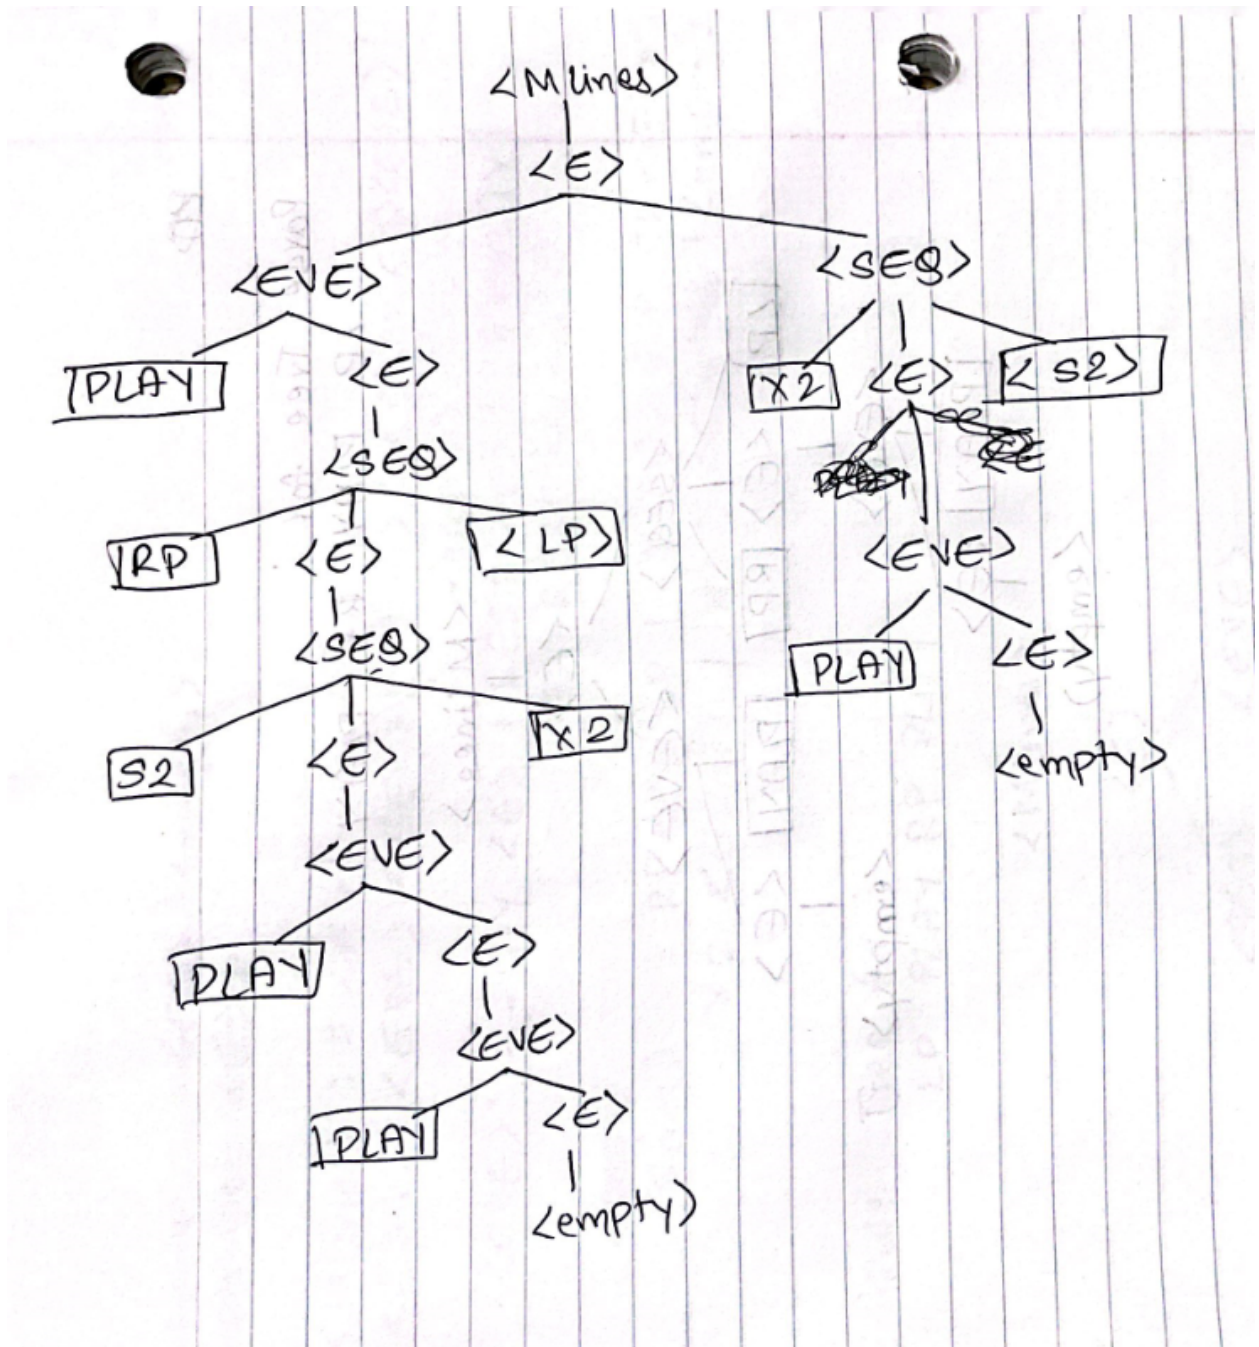 <M lines>
<E>
<EVE> <SEQ>
PLAY <E> X2 <E> <S2>
<SEQ>
RP <E> <LP> <EVE>
<SEQ> PLAY <E>
S2 <E> X2 <empty>
<EVE>
PLAY <E>
<EVE>
PLAY <E>
<empty>